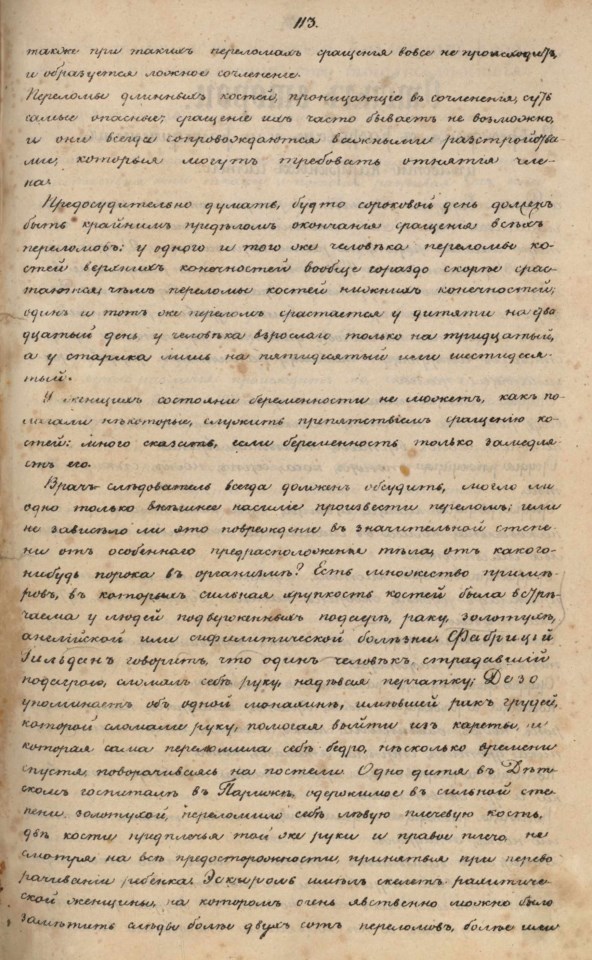 113.
также при такихъ переломахъ сращенія вовсе не происходитъ,
и образуется ложное сочлененіе.
Переломы длинныхъ костей, проницающіе въ сочлененія, суть
самые опасные; сращеніе ихъ часто бываетъ не возможно,
и они всегда сопровождаются важными разстройства-
ми, которыя могутъ требовать отнятія чле-
на.
Предосудительно думать, будто сороковой день долженъ
быть крайнимъ предѣломъ окончанія сращенія всѣхъ
переломовъ: у одного и того же человѣка переломы ко-
стей верхнихъ конечностей вообще гораздо скорѣе срас-
таются, чѣмъ переломы костей нижнихъ конечностей;
одинъ и тотъ же переломъ срастается у дитяти на два
дцатый день, у человѣка взрослаго только на тридцатый,
а у старика лишь на пятидесятый или шестидеся-
тый.
У женщинъ состояніе беременности не можетъ, какъ по-
лагали нѣкоторые, служить препятствіемъ сращенію ко-
стей: много сказать, если беременность только замедля-
етъ его.
Врачъ слѣдователь всегда долженъ обсудить, могло ли
одно только внѣшнее насиліе произвести переломъ; или
не зависѣло ли это поврежденіе въ значительной степе-
ни отъ особеннаго предрасположенья тѣла, отъ какого-
нибудь порока въ организмѣ? Есть множество примѣ-
ровъ, въ которыхъ сильная хрупкость костей была встрѣ-
чаема у людей подверженныхъ подагрѣ, раку, золотухѣ,
англійской или сифилитической болѣзни. Фабрицій
Гильданъ говоритъ, что одинъ человѣкъ, страдавшій
подагрою, сломалъ себѣ руку, надѣвая перчатку; Дезо
упоминаетъ объ одной монахинѣ, имѣвшей ракъ грудей,
которой сломали руку, помогая выйти изъ кареты, и
которая сама переломила себѣ бедро, нѣсколько времени
спустя, поворачиваясь на постели. Одно дитя въ Дѣт-
скомъ госпиталѣ въ Парижѣ, одержимое въ сильной сте-
пени золотухой, переломило себѣ лѣвую плечевую кость,
двѣ кости предплечья той же руки и правое плечо, не
смотря на всѣ предосторожности, принятыя при перево
рачиваніи ребенка. Эскыроль имѣлъ скелетъ рахитиче-
ской женщины, на которомъ очень явственно можно было
замѣтить слѣды болѣе двухъ сотъ переломовъ, болѣе или